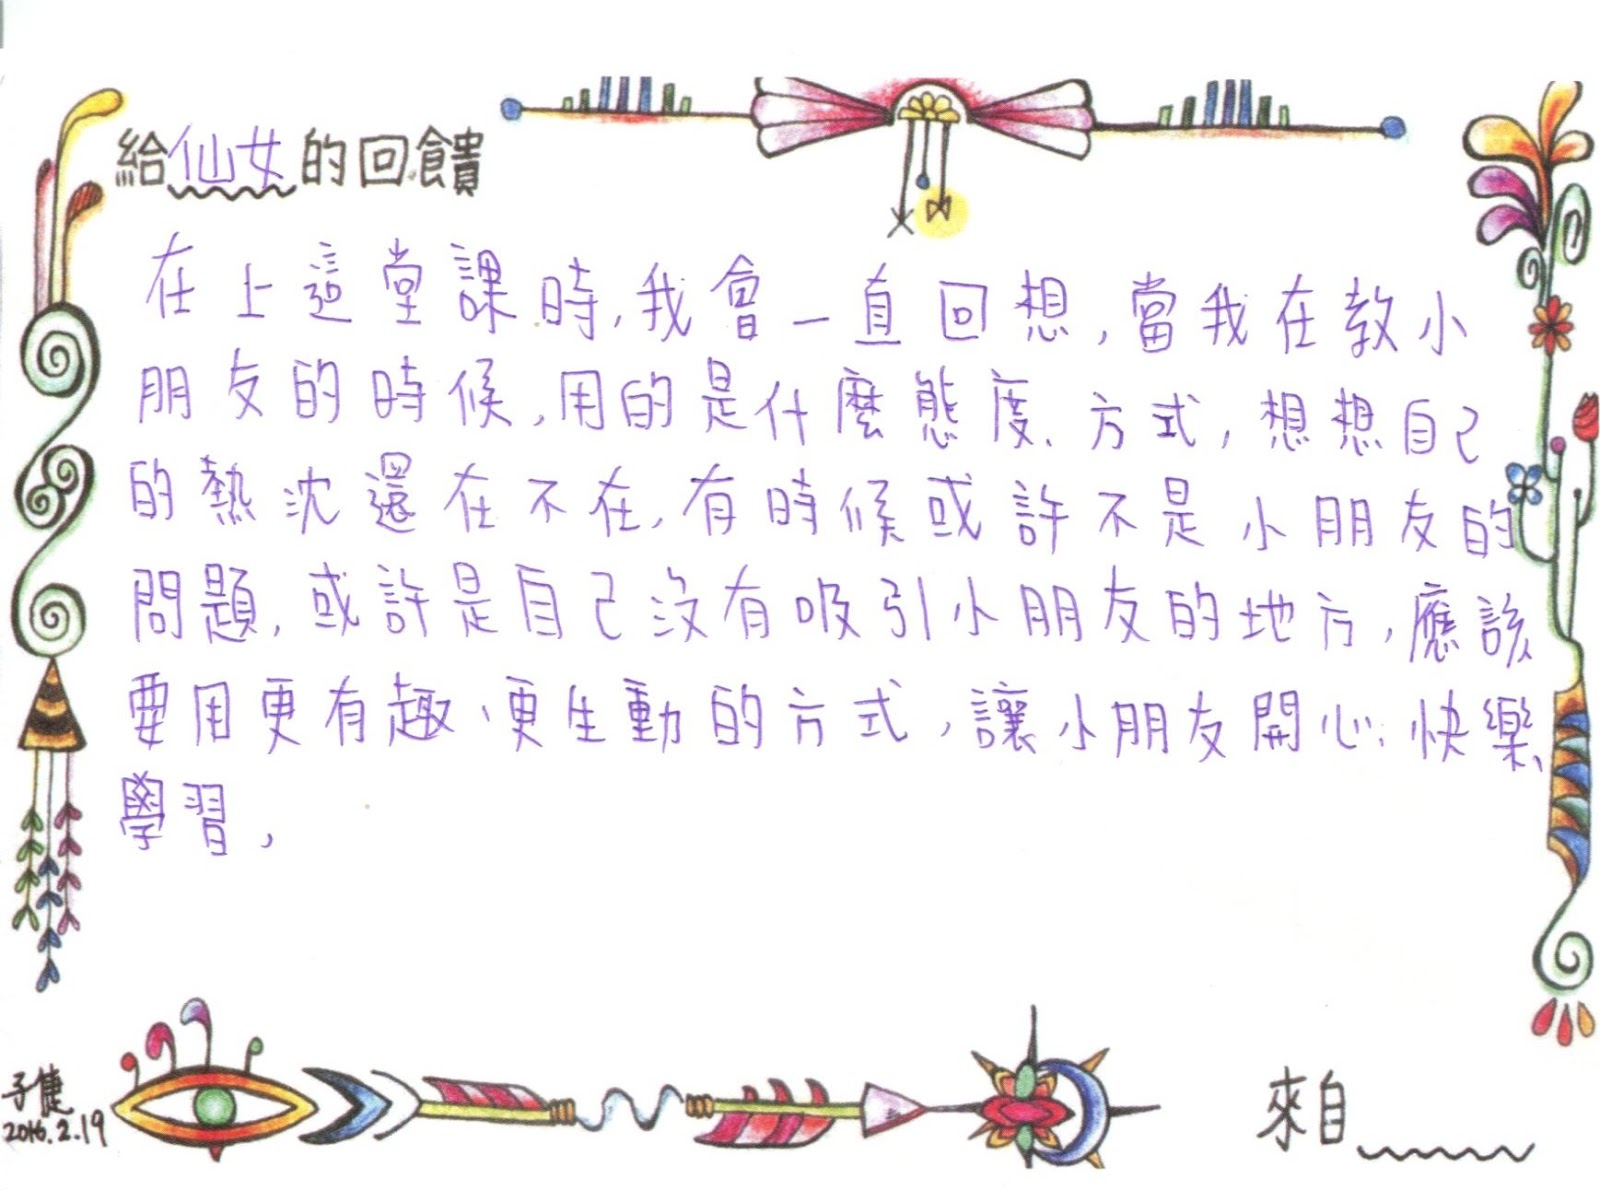 給仙女的回饋
在上這堂課時,我會一直回想,當我在教小
朋友的時候,用的是什麼態度、方式,想想自己
的熱沈還在不在,有時候或許不是小朋友的
問題,或許是自己沒有吸引小朋友的地方,應該
要用更有趣、更生動的方式,讓小朋友開心、快樂、
學習,
子倢
2016.2.19
來自